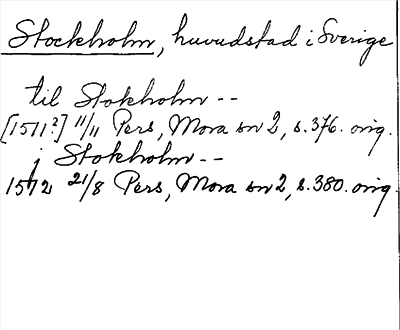 Stockholm, huvudstad i Sverige
til Stokholm --
[1511?] 11/11 Pers, Mora sn 2, s. 376. orig.
j Stokholm --
1512 21/8 Pers, Mora sn 2, s. 380. orig.